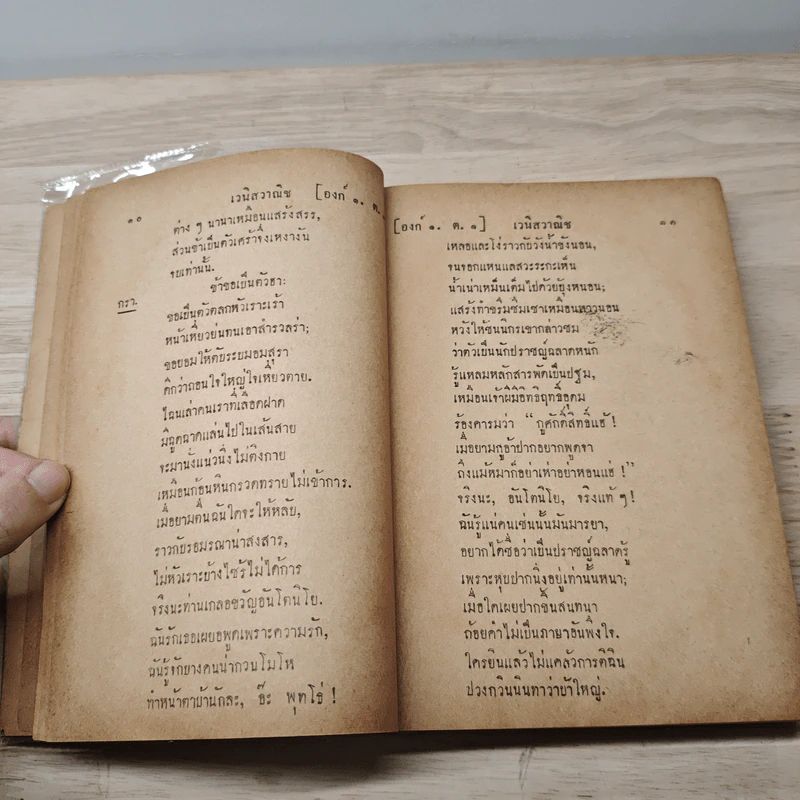 ๑๐ เวนิสวาณิช [องก์ ๑. ต.
ต่าง ๆ นานาเหมือนแสร้งสรร,
ส่วนข้าเป็นตัวเศร้าจึ่งเหงางัน
จบเท่านั้น.
กรา. ข้าขอเป็นตัวฮา:
ขอเป็นตัวตลกหัวเราะเร้า
หน้าเหี่ยวย่นทนเอาสำรวลร่า;
ขอยอมให้ตับระยมอมสุรา
ดีกว่าถอนใจใหญ่ใจเหี่ยวตาย.
ไฉนเล่าคนเราที่เลือดฝาด
มีฉูดฉาดแล่นไปในเส้นสาย
จะมานั่งแน่วนิ่งไม่ติงกาย
เหมือนก้อนหินกรวดทรายไม่เข้าการ.
เมื่อยามตื่นฉันใดจะให้หลับ,
ราวกับรอมรณาน่าสงสาร,
ไม่หัวเราะบ้างไซร้ไม่ได้การ
จริงนะท่านเกลอขวัญอันโตนิโย.
ฉันรักเธอเผยอพูดเพราะความรัก,
ฉันรู้จักบางคนน่ากวนโมโห
ทำหน้าตาบ้านักละ, อ๊ะ พุทโธ่ !
[องก์ ๑. ต. ๑] เวนิสวาณิช ๑๑
เหลอและโง่ราวกับวังน้ำขังนอน,
จนจอกแหนแลสวะระกะเห็น
น้ำเน่าเหม็นเต็มไปด้วยยุงหนอน;
แสร้งทำขรึมซึมเซาเหมือนหาวนอน
หวังให้ชนนิกรเขากล่าวชม
ว่าตัวเป็นนักปราชญ์ฉลาดหนัก
รู้แหลมหลักสารพัดเป็นปฐม,
เหมือนเจ้าผีมีอิทธิฤทธิ์อุดม
ร้องคารมว่า “กูศักดิ์สิทธิ์แฮ้ !
เมื่อยามกูอ้าปากอยากพูดจา
ถึงแม้หมาก็อย่าเห่าอย่าหอนแฮ่ !”
จริงนะ, อันโตนิโย, จริงแท้ ๆ !
ฉันรู้แน่คนเช่นนั้นมันมารยา,
อยากได้ชื่อว่าเป็นปราชญ์ฉลาดรู้
เพราะหุบปากนิ่งอยู่เท่านั้นหนา;
เมื่อใดเผยปากขึ้นสนทนา
ถ้อยคำไม่เป็นภาษาอันพึงใจ.
ใครยินแล้วไม่แคล้วการติฉิน
ปวงกวินนินทาว่าบ้าใหญ่.